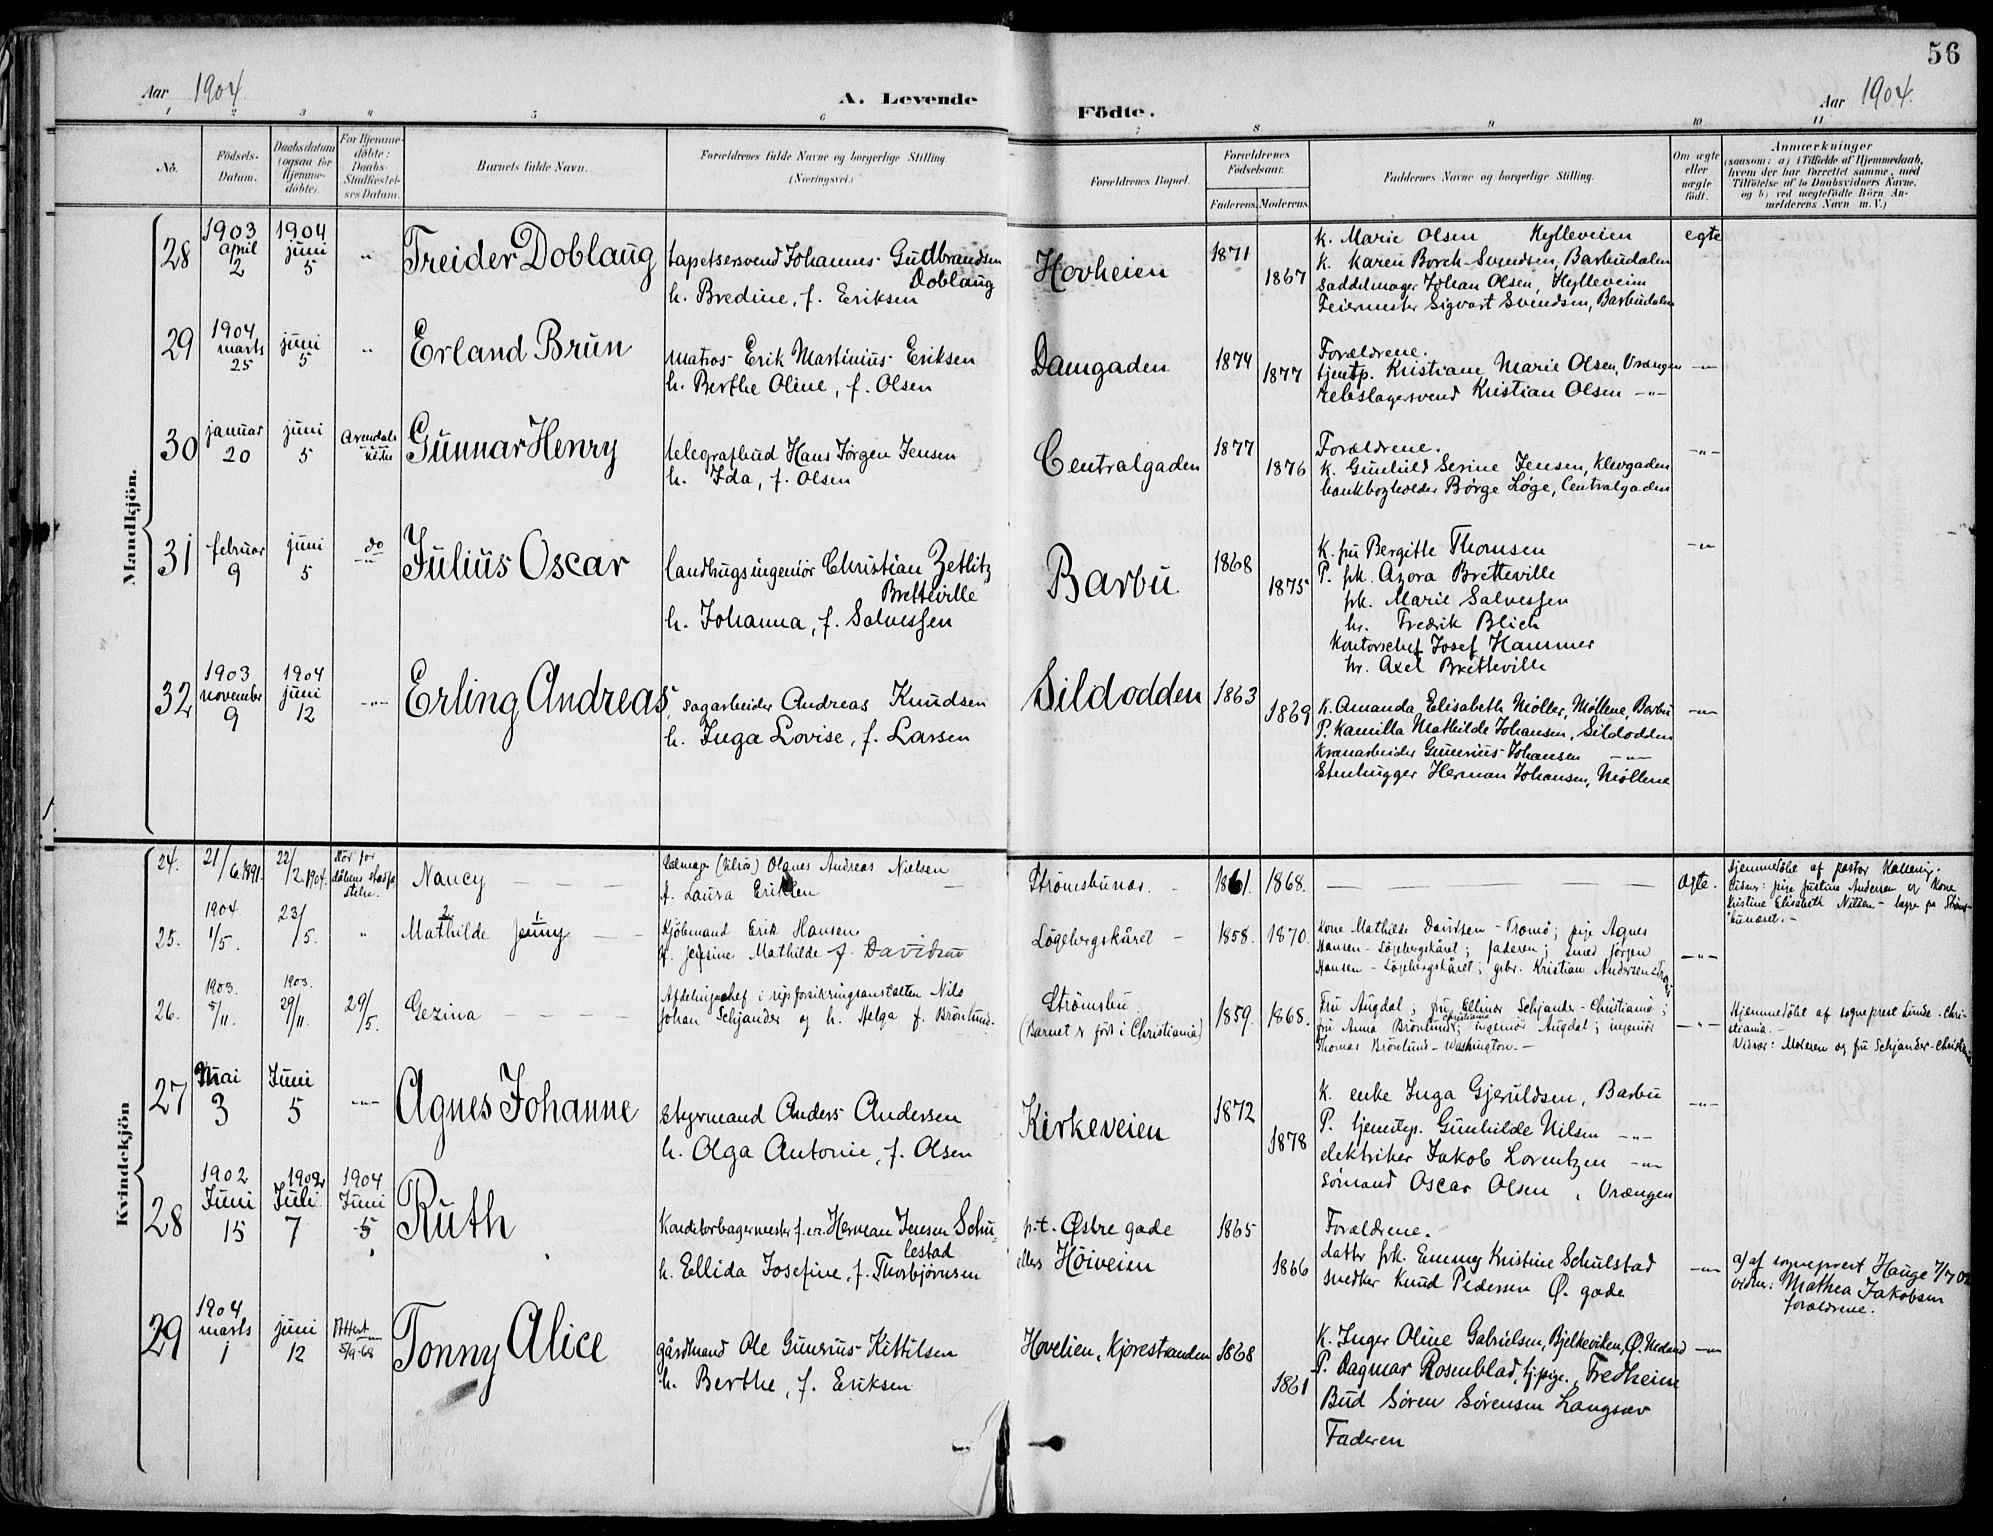 56
Aar 1904.
A. Levende
Födte.
Aar 1904.
1 2 3 4 5 6 7 8 9 10 11
No.
Födsels-Datum.
Daabsdatum (ogsaa for Hjemme-döbte).
For Hjemme-döbte: Daabs-Stadfæstel-ses Datum.
Barnets fulde Navn.
Forældrenes fulde Navne og borgerlige Stilling. (Næringsvei.)
Forældrenes Bopæl.
Forældrenes Födselsaar.
Faderens. Moderens.
Faddernes Navne og borgerlige Stilling.
Om ægte eller uægte födt.
Anmærkninger
(saasom: a) i Tilfælde af Hjemmedaab,
hvem der har forrettet samme, med
Tilföielse af to Daabsvidners Navne,
og b) ved uægtefödte Börn An-
melderens Navn m. V.)
Mandkjön.
28
1903 april 2
1904 juni 5
"
Treider Doblaug
tapetsersvend Johannes Gudbrandsen
Doblaug
h. Bredine, f. Eriksen
Hovheien
1871
1867
K. Marie Olsen Hylleveien
K. Karen Borch-Svendsen, Barbudalen
Saddelmager Johan Olsen, Hylleveien
Feiermester Sigvart Svendsen, Barbudalen
egte
29
1904 marts 25
juni 5
"
Erland Brun
matros Erik Martinius Eriksen
h. Berthe Oline, f. Olsen
Damgaden
1874
1877
Forældrene.
tjentp. Kristiane Marie Olsen, Vrængen
rebslagersvend Kristian Olsen -"-
-"-
30
januar 20
juni 5
Arendals
Gunnar Henry
telegrafbud Hans Jørgen Jensen
h. Ida, f. Olsen
Centralgaden
1877
1876
Forældrene.
K. Gunhild Serine Jensen, Klevgaden
bankbogholder Børge Løge, Centralgaden
-"-
31
februar 9
juni 5
do
Julius Oscar
landbrugsingeniør Christian Zetlitz
Bretteville
h. Johanna, f. Salvessen
Barbu
1868
1875
K. fru Bergitte Thomsen
P. frk. Azora Bretteville
frk. Marie Salvessen
hr. Fredrik Blich
Kontorschef Josef Hammer
hr. Axel Bretteville
-"-
32
1903 november 9
1904 juni 12
-"-
Erling Andreas
sagarbeider Andreas Knudsen
h. Inga Lovise, f. Larsen
Sildodden
1863
1869
K. Amanda Elisabeth Møller, Møllene, Barbu
P. Kamilla Mathilde Johansen, Sildodden
Kranarbeider Gunerius Johansen -"-
Stenhugger Herman Johansen, Møllene
-"-
Kvindekjön
24.
21/6.1891.
22/2.1904.
Nancy
Olaves Andreas Nielsen
f. Laura Eriksen
Strömsbunes.
1861.
1868.
Ægte.
Hjemmedöbt af pastor
Vidner: pige Justine Andersen og Kone
Kristine Elisabeth Nilsen
25.
1904. 1/5.
23/5.
"
2. 1.
Mathilde Jenny
Kjöbmand Erik Hansen
h. Jensine Mathilde f. Davidsen
Lögebergskåret
1858.
1870.
Kone Mathilde Davidsen - Tromö; pige Agnes
Hansen - Lögebergskåret; faderen; smed Jörgen
Hansen - Lögebergskåret; gbr. Kristian Andersen
-"-
26.
1903. 5/11.
1903. 29/11.
29/5.
Gezina
Afdelingschef i rigsforsikringsanstalten Nils
Johan Schjander og h. Helga f. Brönlund.
Strömsbu
(Barnet er födt i Christiania)
1859.
1868.
Fru Augdal; fru Ellinor Schjander - Christiania;
fru Anna Brönlund; Christiania ingeniör Augdal; ingeniör
Thomas Brönlund - Washington. -
-"-
Hjemmedöbt af sogneprest Linde - Chri-
stiania. -
Vidner: Moderen og fru Schjander - Christiania
27
Mai 3
Juni 5
-"-
Agnes Johanne
styrmand Anders Andersen
h. Olga Antonie, f. Olsen
Kirkeveien
1872
1878
K. enke Inga Gjeruldsen, Barbu
P. tjenstp. Gunhilde Nilsen -"-
elektriker Jakob Lorentzen -"-
Sømand Oscar Olsen, Vrængen
-"-
28
1902 Juni 15
1902 Juli 7
1904 Juni 5
Ruth
Konditorbagermester Herman Jensen Schu-
lestad
h. Ellida Josefine, f. Thorbjørnsen
p.t. Østre gade
ellers Höiveien
1865
1866
Forældrene.
datter frk. Emmy Kristine Schulstad
snedker Knud Pedersen Ø. gade
-"-
a) af sogneprest Hauge 7/7 02
vidn: Mathea Jakobsen
forældrene.
29
1904 marts 1
juni 12
Attest
Tonny Alice
gårdmand Ole Gunerius Kittilsen
h. Berthe, f. Eriksen
Hovelien, Kjørestranden
1868
1861
K. Inger Oline Gabrielsen, Bjelkeviken, Ø. Nedenes
P. Dagmar Rosenblad, tj.pige, Fredheim
Bud Søren Sørensen Langsæv
Faderen
-"-